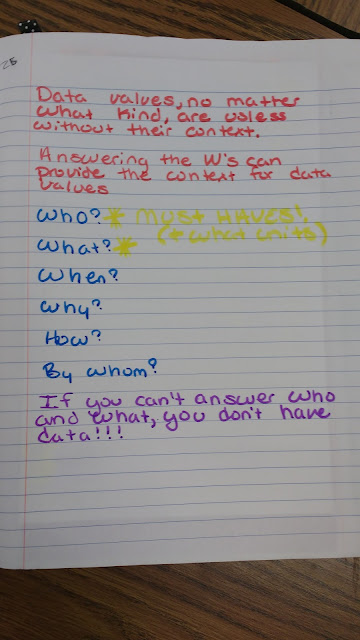 25
Data values, no matter
what kind, are usless
without their context.
Answering the W's can
provide the context for data
values
Who? * MUST HAVES!
What? * (+ what units)
When?
Why?
How?
By whom?
If you can't answer who
and what, you don't have
data!!!